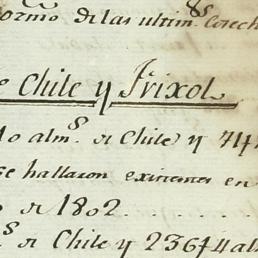 ormo de las ultim.s Cosech
Chile y Frixol
alm.s de Chile y 74
se hallaron existentes en
de 1802.......
s de Chile y 23674 al